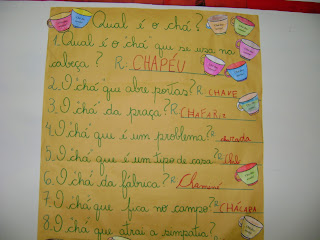 Qual é o chá?
1. Qual é o chá que se usa na
cabeça? R. CHAPÉU
2. O chá que abre portas? R. CHAVE
3. O chá da praça? R. CHAFARIZ
4. O chá que é um problema? R. charada
5. O chá que é um tipo de casa? R.
6. O chá da fábrica? R. Chaminé
7. O chá que fica no campo? R. CHÁCARA
8. O chá que atrai a simpatia?